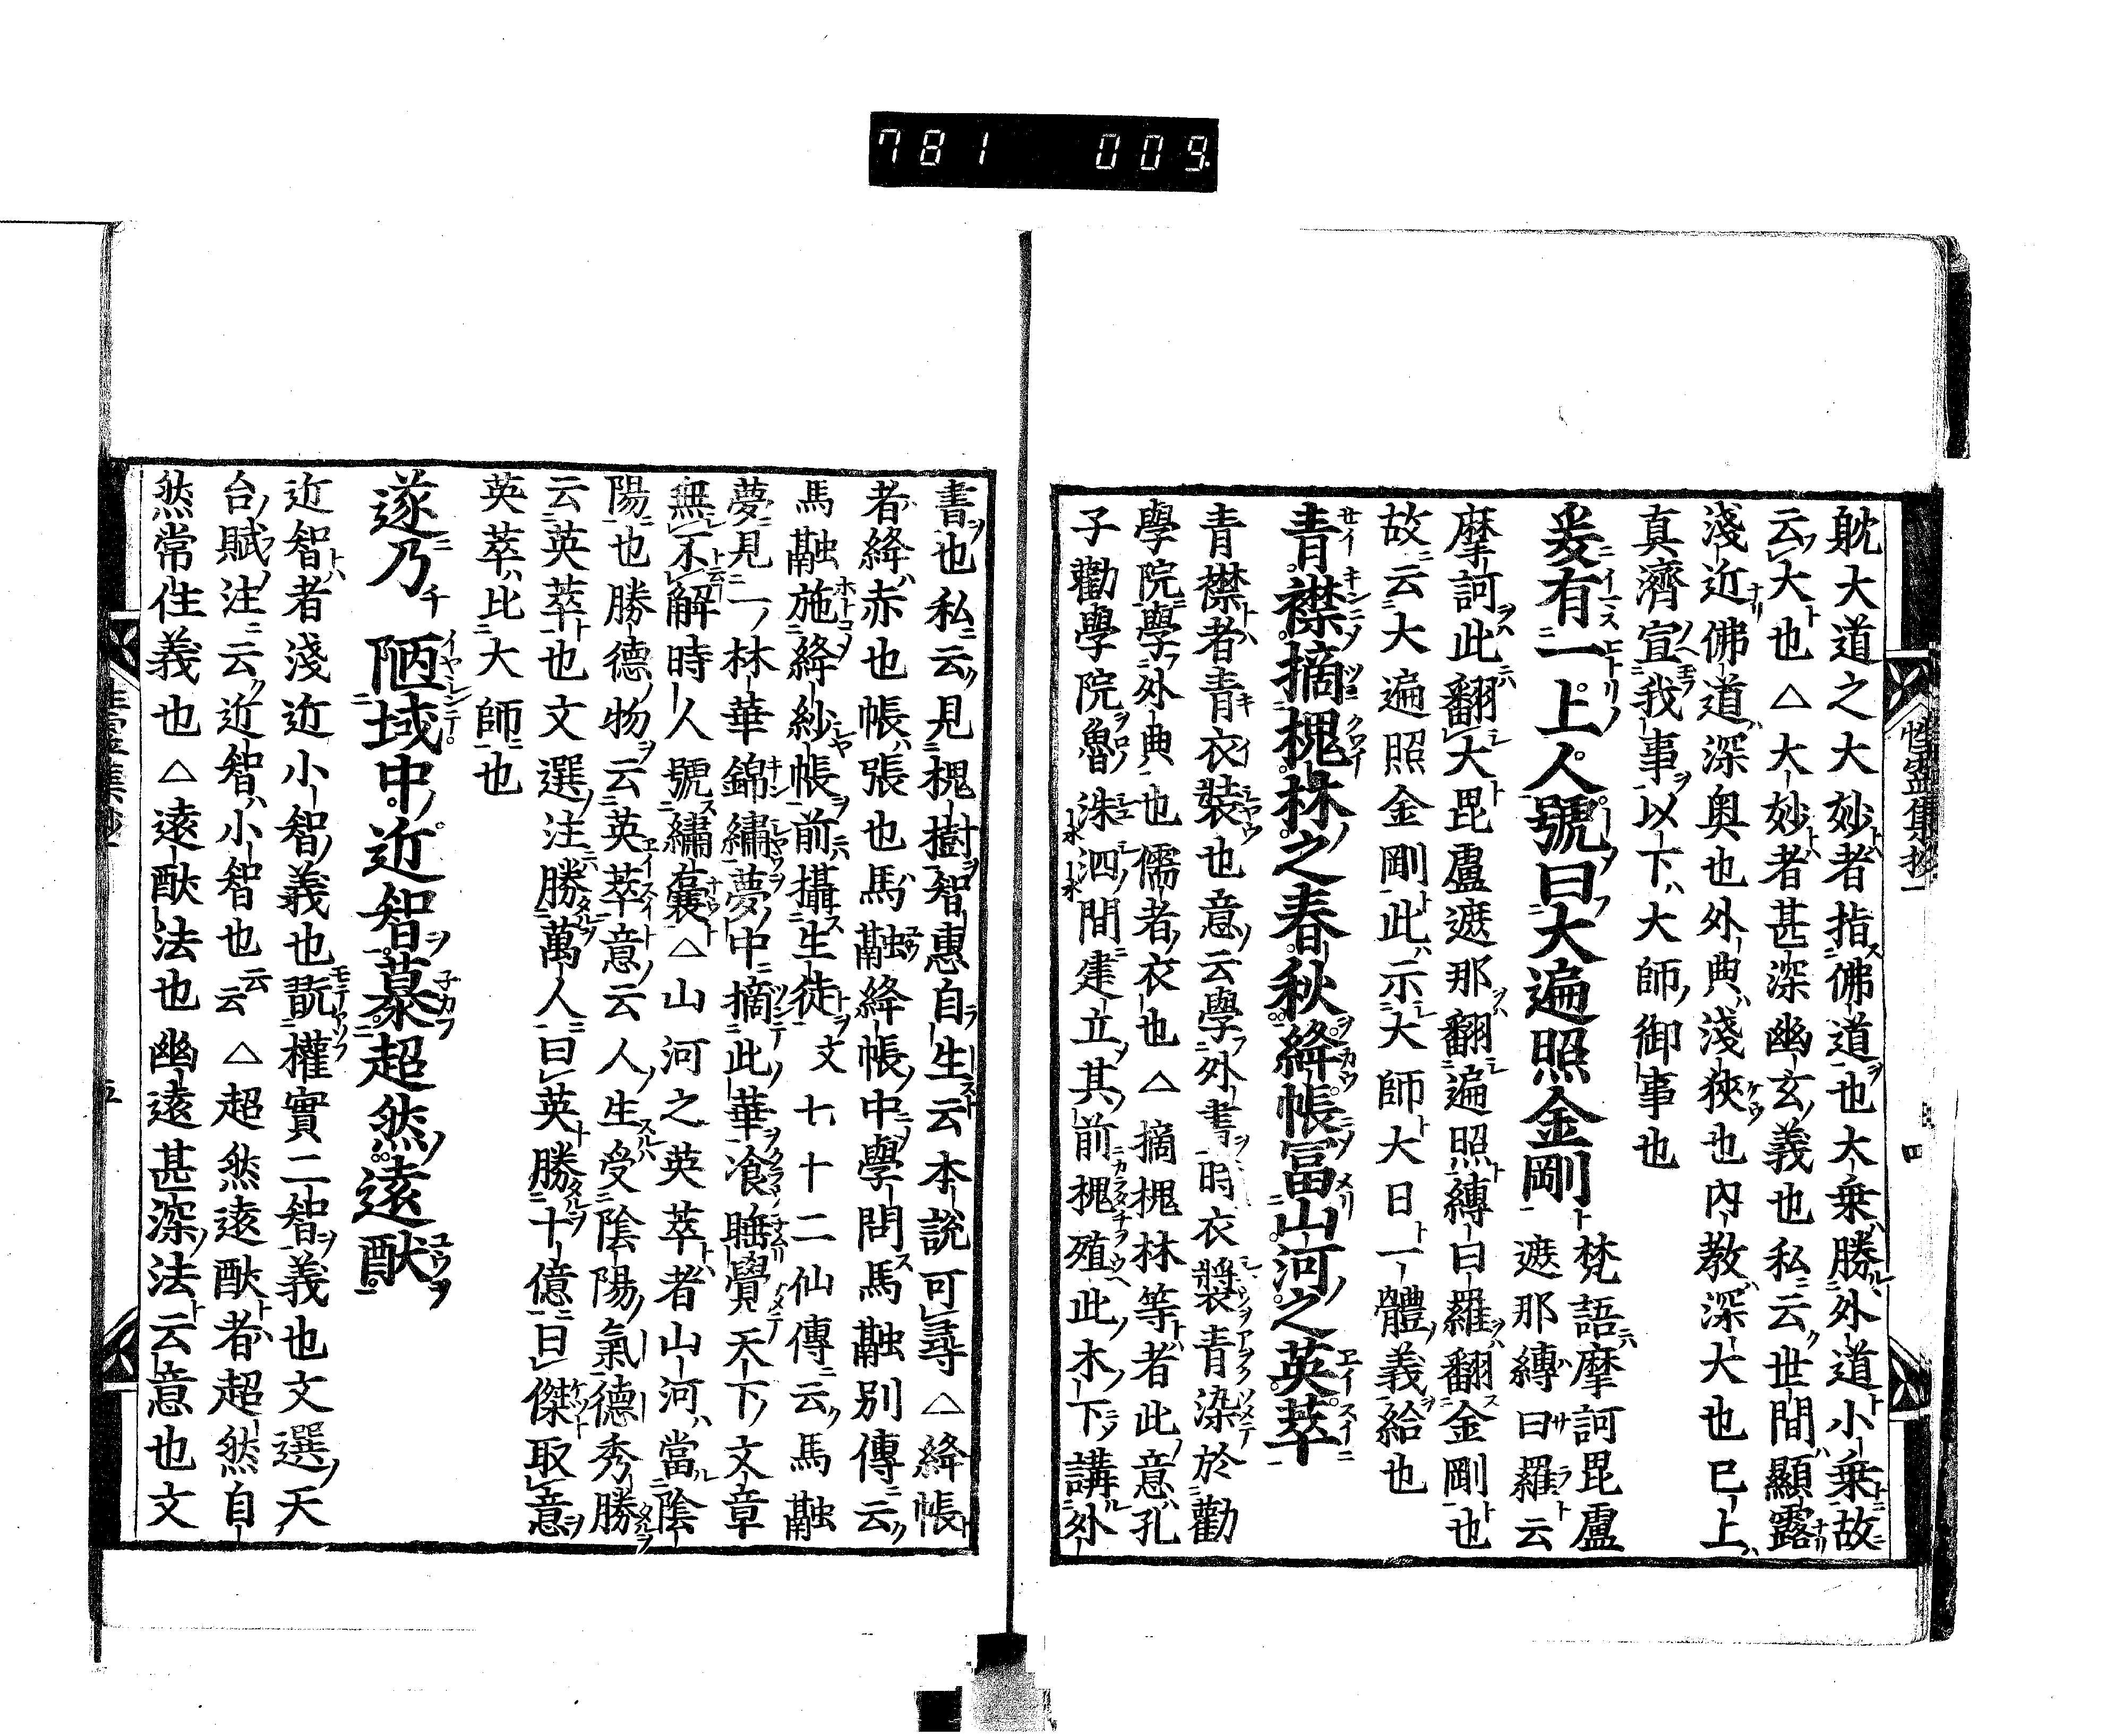 781 009
躭大道之大妙者指佛道也大乗勝外道小乗故
云大也△大妙者甚深幽玄義也私云世間顯露
淺近佛道深奥也外典淺狹也内教深大也巳上
真濟宣我事以下大師御事也
爰有一上人號曰大遍照金剛 梵語摩訶毘盧
遮那縛曰羅云
摩訶此翻大毘盧遮那翻遍照縛曰羅翻金剛也
故云大遍照金剛此示大師大日一體義給也
青襟摘槐林之春秋絳帳冨山河之英萃
青襟者青衣裝也意云學外書時衣裝青染於勸
學院學外典也儒者衣也△摘槐林等者此意孔
子勸學院魯洙泗間建立其前槐殖此木下講外
性霊集抄一 四
書也私云見槐樹智惠自生云本説可尋△絳帳
者絳赤也帳張也馬融絳帳中學問馬融別傳云
馬融施絳紗帳前攝生徒文七十二仙傳云馬融
夢見一林華錦繡夢中摘此華飡睡覺天下文章
無不解時人號繡嚢△山河之英萃者山河當陰
陽也勝德物云英萃意云人生受陰陽氣德秀勝
云英萃也文選注勝萬人曰英勝十億曰傑取意
英萃比大師也
遂乃 陋域中近智慕超然遠猷
近智者淺近小智義也翫權實二智義也文選天
台賦注云近智小智也云云△超然遠猷者超然自
然常住義也△遠猷法也幽遠甚深法云意也文
五